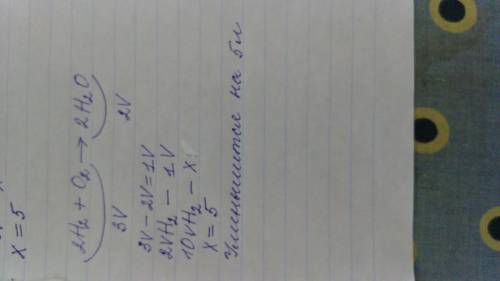 x = 5
2H₂ + O₂ → 2H₂O
3V 2V
3V - 2V = 1V
2VH₂ - 1V
10VH₂ - x
x = 5
Уменьшится на 5л